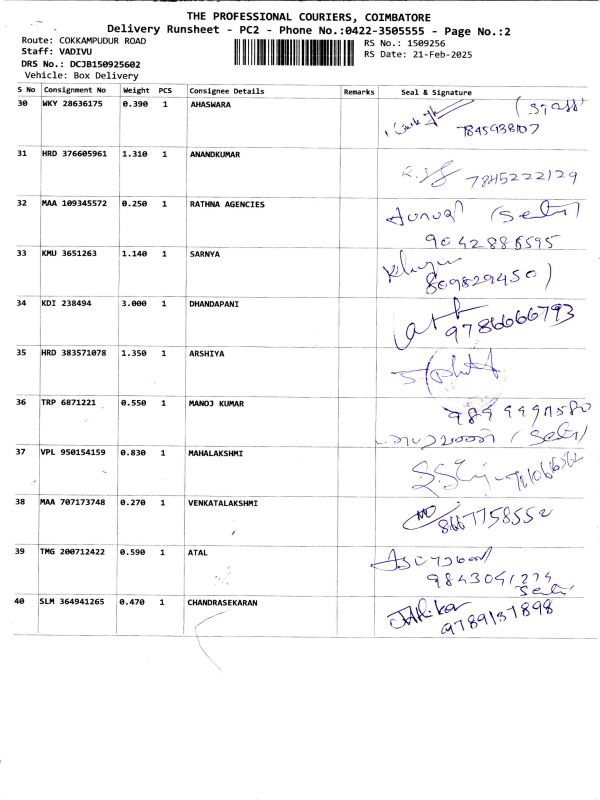 THE PROFESSIONAL COURIERS, COIMBATORE
Delivery Runsheet - PC2 - Phone No.:0422-3505555 - Page No.:2
Route: COKKAMPUDUR ROAD
Staff: VADIVU
DRS No.: DCJB150925602
Vehicle: Box Delivery
RS No.: 1509256
RS Date: 21-Feb-2025
S No Consignment No Weight PCS Consignee Details Remarks Seal & Signature
30 WKY 28636175 0.390 1 AHASWARA (Staff)
7845938107
31 HRD 376605961 1.310 1 ANANDKUMAR
7845222129
32 MAA 109345572 0.250 1 RATHNA AGENCIES
9042886595
33 KMU 3651263 1.140 1 SARNYA
8098294501
34 KDI 238494 3.000 1 DHANDAPANI
9786666793
35 HRD 383571078 1.350 1 ARSHIYA
36 TRP 6871221 0.550 1 MANOJ KUMAR
37 VPL 950154159 0.830 1 MAHALAKSHMI
38 MAA 707173748 0.270 1 VENKATALAKSHMI
8667758552
39 TMG 200712422 0.590 1 ATAL
9843041274
40 SLM 364941265 0.470 1 CHANDRASEKARAN
9789137898